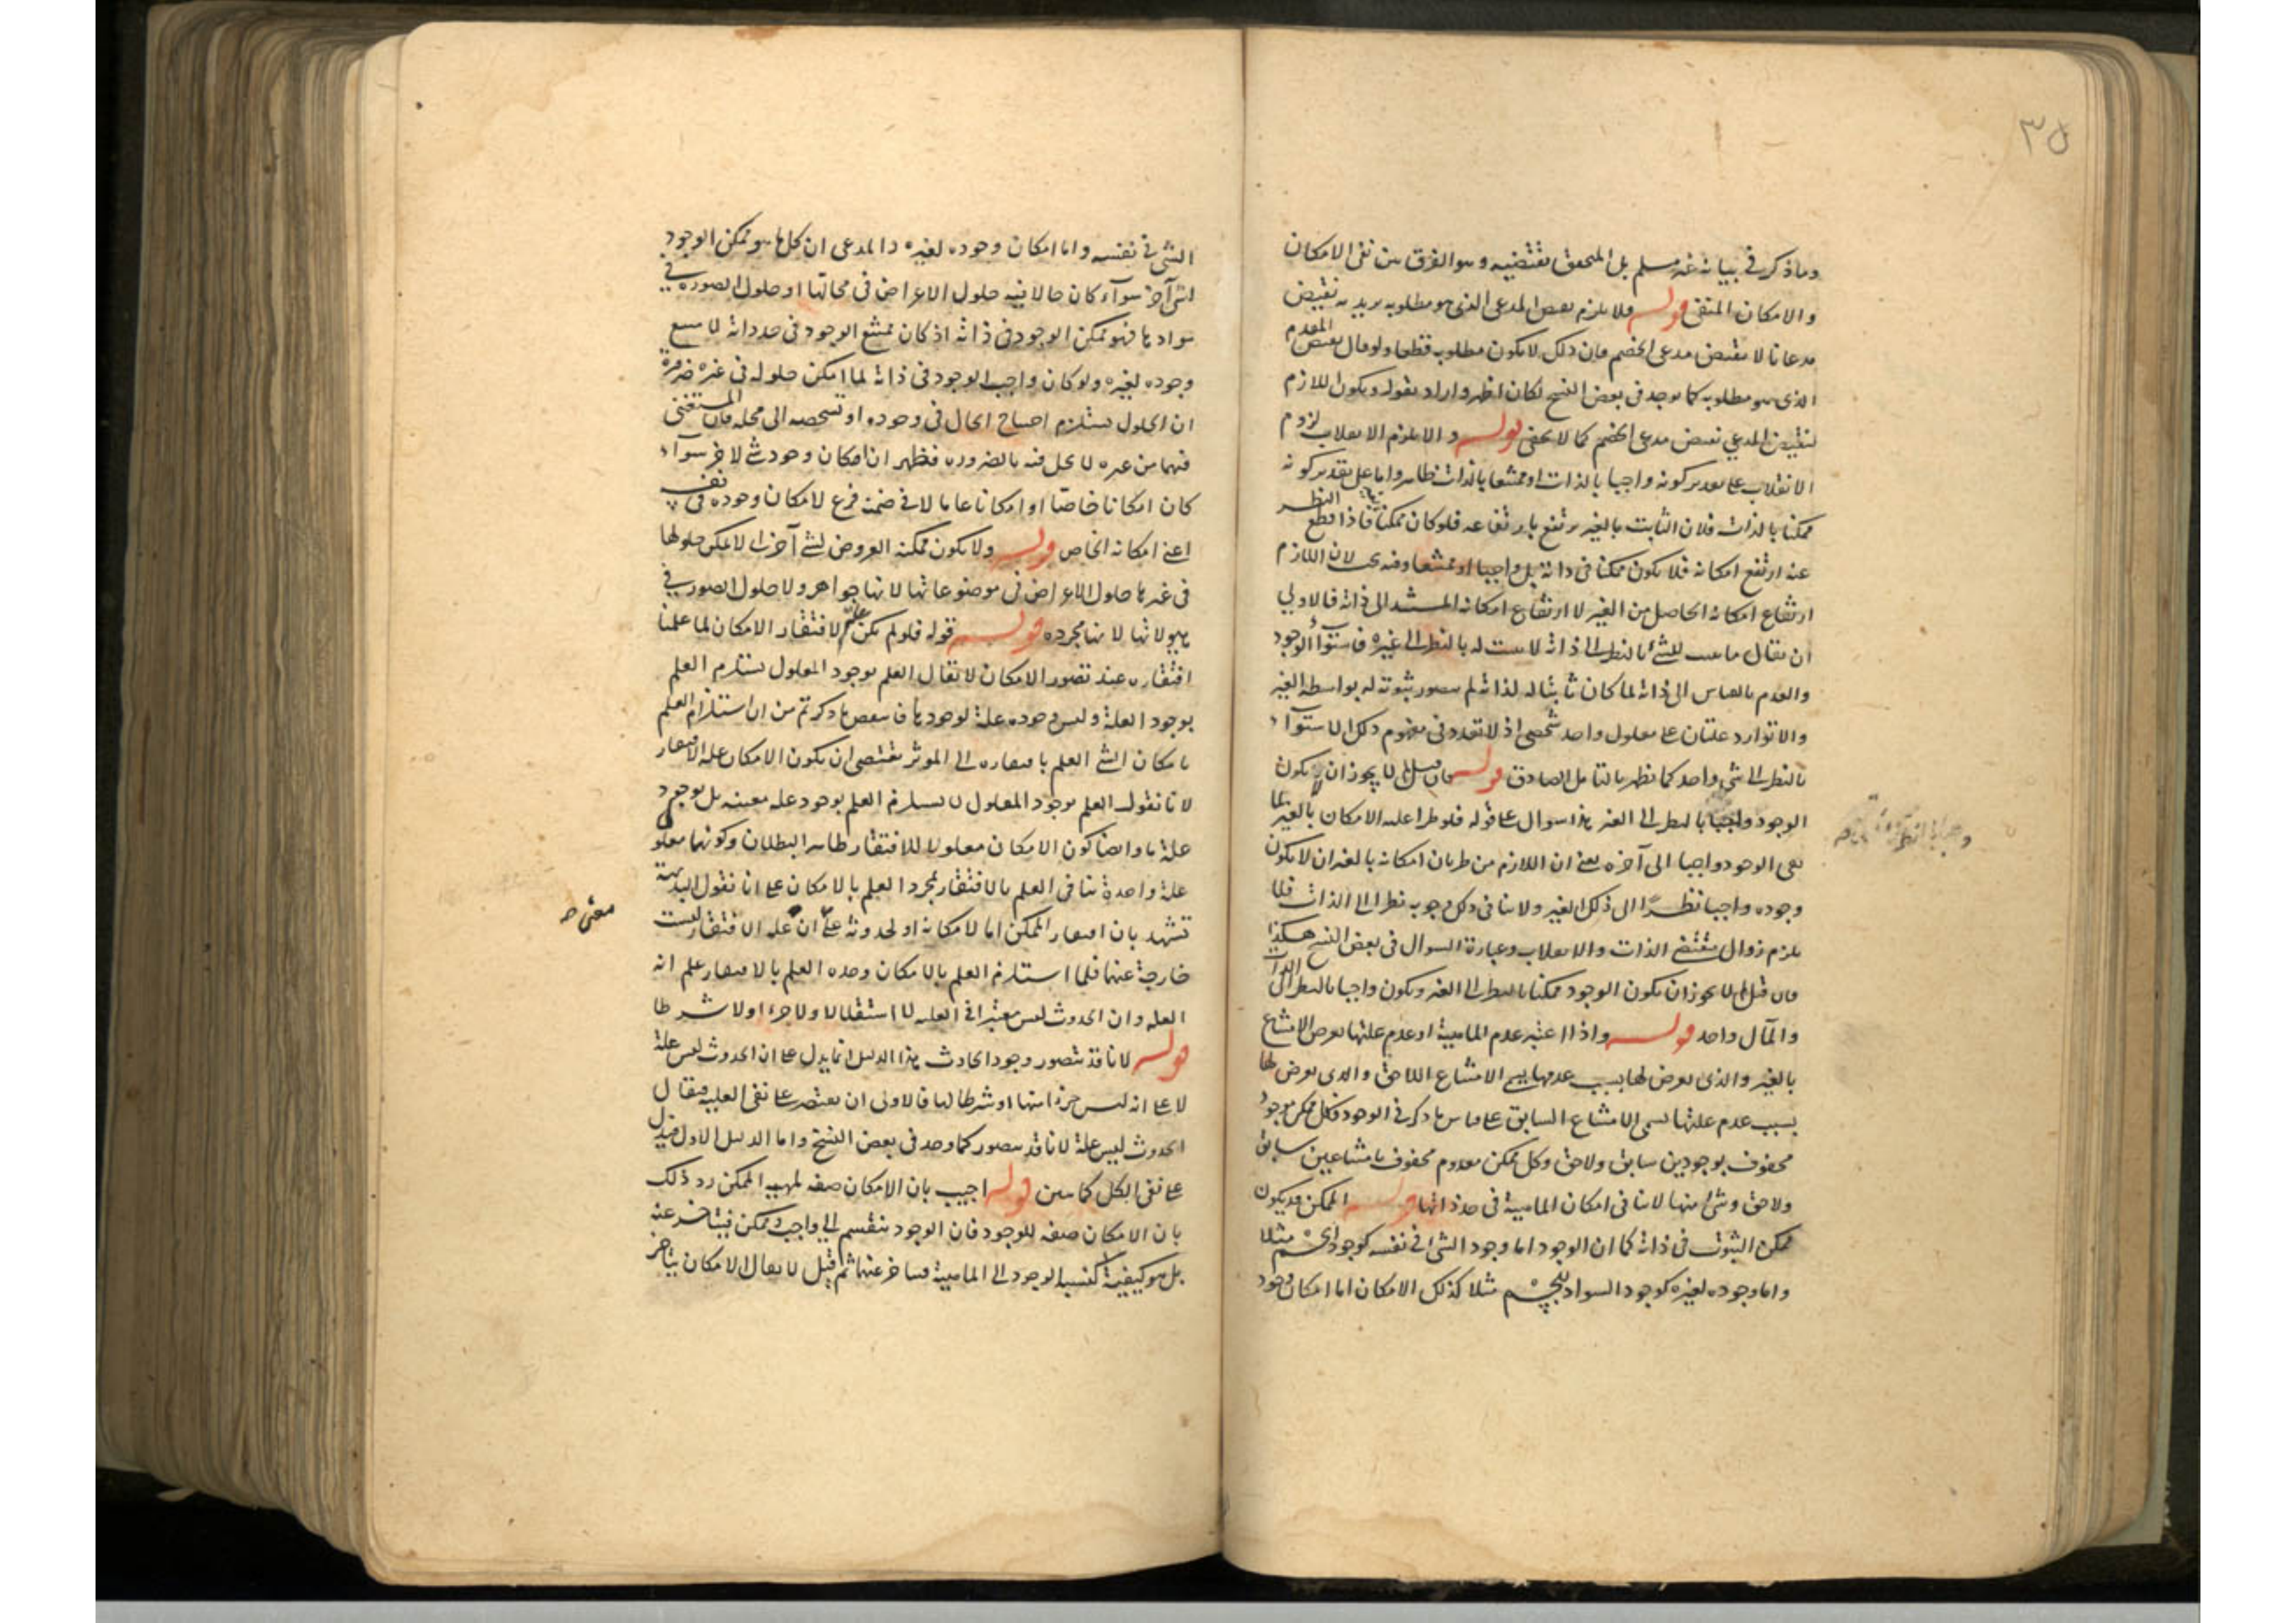 ٣٥
وما ذكر في بيانه غير مسلم بل المحقق نقتضيه وهو الفرق بين نفي الامكان
والامكان المنفي قوله فلا يلزم نقيض المدعى الذي هو مطلوبه يريد به نقيض
مدعانا لا نقيض مدعى الخصم فان ذلك لا يكون مطلوبه قطعا ولو قال نقيض المقدم
الذي هو مطلوبه كما يوجد في بعض النسخ لكان اظهر واراد بقوله ويكون اللازم
لنقيض المدعي نقيض مدعى الخصم كما لا يخفى قوله والا يلزم الانقلاب لزوم
الانقلاب على تقدير كونه واجبا بالذات او ممتنعا بالذات ظاهر واما على تقدير كونه
ممكنا بالذات فلان الثابت بالغير يرتفع بارتفاعه فلو كان ممكنا فاذا قطع النظر
عنه ارتفع امكانه فلا يكون ممكنا في ذاته بل واجبا او ممتنعا وفيه بحث لان اللازم
ارتفاع امكانه الحاصل من الغير لا ارتفاع امكانه المستند الى ذاته فالاولى
ان يقال ما يثبت للشئ بالنظر الى ذاته لا يثبت له بالنظر الى غيره فاستواء الوجود
والعدم بالقياس الى ذاته لما كان ثابتا له لذاته لم يتصور ثبوته له بواسطة الغير
والا توارد علتان على معلول واحد شخصي اذ لا تعدد في مفهوم ذلك الاستواء
بالنظر الى شئ واحد كما يظهر بالتامل الصادق قوله فان قيل لم لا يجوز ان لا يكون
الوجود واجبا بالنظر الى الغير هذا سوال على قوله فلو طرا عليه الامكان بالغير لما
بقي الوجود واجبا الى آخره يعني ان اللازم من طريان امكانه بالغير ان لا يكون
وجوده واجبا نظرا الى ذلك الغير ولا ينافي ذلك وجوبه نظرا الى الذات فلا
يلزم زوال مقتضى الذات والانقلاب وعبارة السوال في بعض النسخ هكذا
فان قيل لم لا يجوز ان يكون الوجود ممكنا بالنظر الى الغير ويكون واجبا بالنظر الى الذات
والمآل واحد قوله واذا اعتبر عدم الماهية او عدم علتها يعرض الامتناع
بالغير والذي يعرض لها بسبب عدمها يسمى الامتناع اللاحق والذي يعرض لها
بسبب عدم علتها يسمى الامتناع السابق على قياس ما ذكر في الوجود فكل ممكن موجود
محفوف بوجوبين سابق ولاحق وكل ممكن معدوم محفوف بامتناعين سابق
ولاحق وشئ منها لا ينافي امكان الماهية في حد ذاتها قوله الممكن قد يكون
ممكن الثبوت في ذاته كما ان الوجود اما وجود الشئ في نفسه كوجود الجسم مثلا
واما وجوده لغيره كوجود السواد للجسم مثلا كذلك الامكان اما امكان وجود
الشئ في نفسه واما امكان وجوده لغيره والمدعى ان كل ما هو ممكن الوجود
لشئ آخر سواء كان حالا فيه حلول الاعراض في محالها او حلول الصورة في
موادها فهو ممكن الوجود في ذاته اذ كان ممتنع الوجود في حد ذاته لامتنع
وجوده لغيره ولو كان واجب الوجود في ذاته لما امكن حلوله في غيره ضرورة
ان الحلول يستلزم احتياج الحال في وجوده او تشخصه الى محله فان المستغنى
فيهما من غيره لا يحل فيه بالضرورة فظهر ان امكان وجود شئ لآخر سواء
كان امكانا خاصا او امكانا عاما لا في ضمنه فرع لامكان وجوده في نفسه
اعنى امكانه الخاص قوله ولا يكون ممكنه العروض لشئ آخر لا يمكن حلولها
في غيرها حلول الاعراض في موضوعاتها لانها جواهر ولا حلول الصور في
هيولاتها لانها مجردة قوله قوله فلو لم يكن علة لافتقار الامكان لما علمنا
افتقاره عند تصور الامكان لا يقال العلم بوجود المعلول يستلزم العلم
بوجود العلة وليس وجوده علة لوجودها فانتقض ما ذكرتم من ان استلزام العلم
بامكان الشئ العلم بافتقاره الى الموثر يقتضى ان يكون الامكان علة الافتقار
لانا نقول العلم بوجود المعلول لا يستلزم العلم بوجود علة معينة بل بوجود
علة ما وايضا كون الامكان معلولا للافتقار ظاهر البطلان وكونهما معلولى
علة واحدة ينافي العلم بالافتقار بمجرد العلم بالامكان على انا نقول البديهة
تشهد بان افتقار الممكن اما لامكانه او لحدوثه على ان علة الافتقار ليست
معنى صح
خارجة عنهما فلما استلزم العلم بالامكان وحده العلم بالافتقار علم انه
العلة وان الحدوث ليس معتبرا في العلية لا استقلالا ولا جزءا ولا شرطا
قوله لانا قد نتصور وجود الحادث هذا الدليل انما يدل على ان الحدوث ليس علة
لا على انه ليس جزءا منها او شرطا لها فالاولى ان يقتصر على نفي العلية فيقال
الحدوث ليس علة لانا قد نتصور كما وجد في بعض النسخ واما الدليل الاول فيدل
على نفي الكل كما تبين قوله اجيب بان الامكان صفة لمهية الممكن رد ذلك
بان الامكان صفة للوجود فان الوجود ينقسم الى واجب وممكن فيتاخر عنه
بل هو كيفية لنسبة الوجود الى الماهية فيتاخر عنهما ثم قيل لا يقال الامكان يتاخر